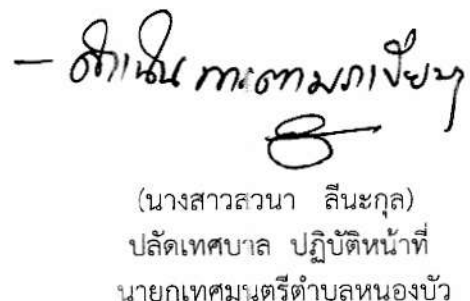 – ดำเนินการตามระเบียบฯ
(นางสาวสวนา ลีนะกุล)
ปลัดเทศบาล ปฏิบัติหน้าที่
นายกเทศมนตรีตำบลหนองบัว